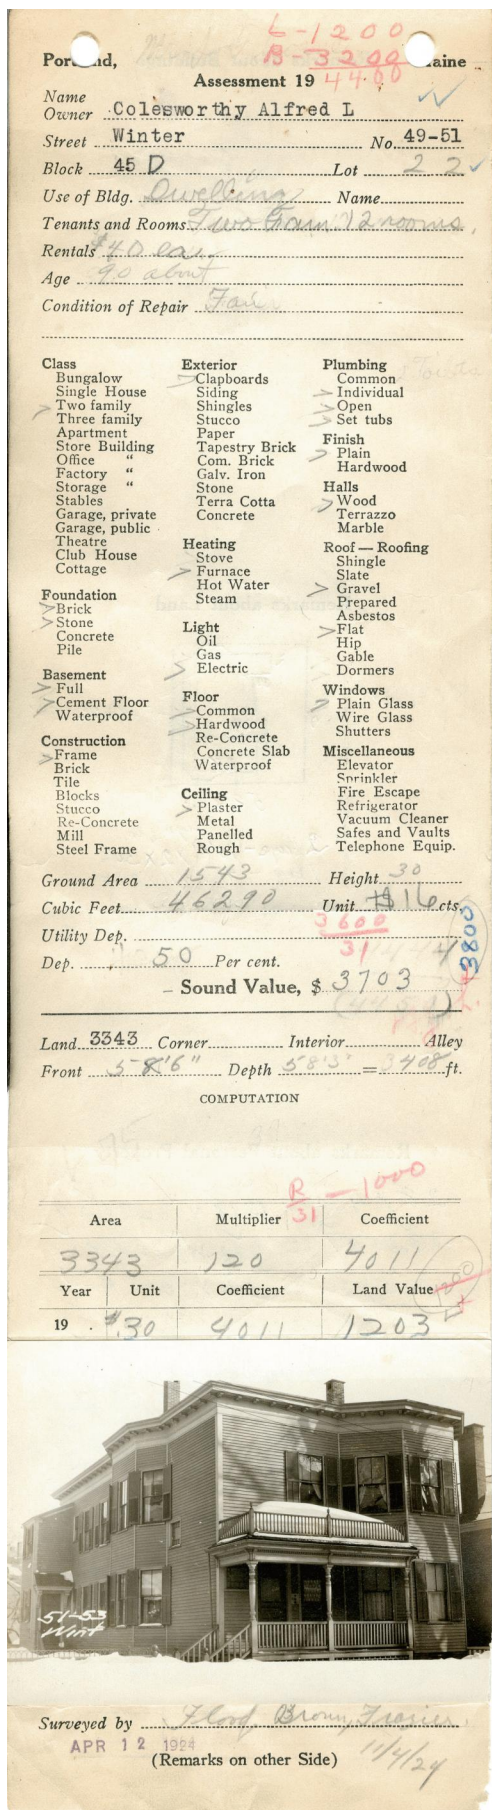 L-1200
B-3200
4400
Portland, Maine
Assessment 19
Name
Owner Colesworthy Alfred L
Street Winter No. 49-51
Block 45 D Lot 22
Use of Bldg. Dwelling Name
Tenants and Rooms Two Fam 12 rooms.
Rentals $40 ea.
Age 90 about
Condition of Repair Fair
Class
Bungalow
Single House
> Two family
Three family
Apartment
Store Building
Office "
Factory "
Storage "
Stables
Garage, private
Garage, public
Theatre
Club House
Cottage
Foundation
> Brick
> Stone
Concrete
Pile
Basement
> Full
> Cement Floor
Waterproof
Construction
> Frame
Brick
Tile
Blocks
Stucco
Re-Concrete
Mill
Steel Frame
Exterior
> Clapboards
Siding
Shingles
Stucco
Paper
Tapestry Brick
Com. Brick
Galv. Iron
Stone
Terra Cotta
Concrete
Heating
Stove
> Furnace
Hot Water
Steam
Light
Oil
Gas
> Electric
Floor
> Common
> Hardwood
Re-Concrete
Concrete Slab
Waterproof
Ceiling
> Plaster
Metal
Panelled
Rough
Plumbing
Common
> Individual
> Open
> Set tubs
Finish
> Plain
Hardwood
Halls
> Wood
Terrazzo
Marble
Roof — Roofing
Shingle
Slate
> Gravel
Prepared
Asbestos
> Flat
Hip
Gable
Dormers
Windows
> Plain Glass
Wire Glass
Shutters
Miscellaneous
Elevator
Sprinkler
Fire Escape
Refrigerator
Vacuum Cleaner
Safes and Vaults
Telephone Equip.
Ground Area 1543 Height 30
Cubic Feet 46290 Unit $16 cts.
3600
Utility Dep. 31
3800
Dep. 50 Per cent.
Sound Value, $ 3703
Land 3343 Corner Interior Alley
Front 58'6" Depth 58'3" = 3408 ft.
COMPUTATION
R - 1000
31
Area Multiplier Coefficient
3343 120 4011
Year Unit Coefficient Land Value
19 . $.30 4011 1203
51-53
Wint
Surveyed by Flood, Brown, Frazier.
APR 12 1924 11/4/24
(Remarks on other Side)